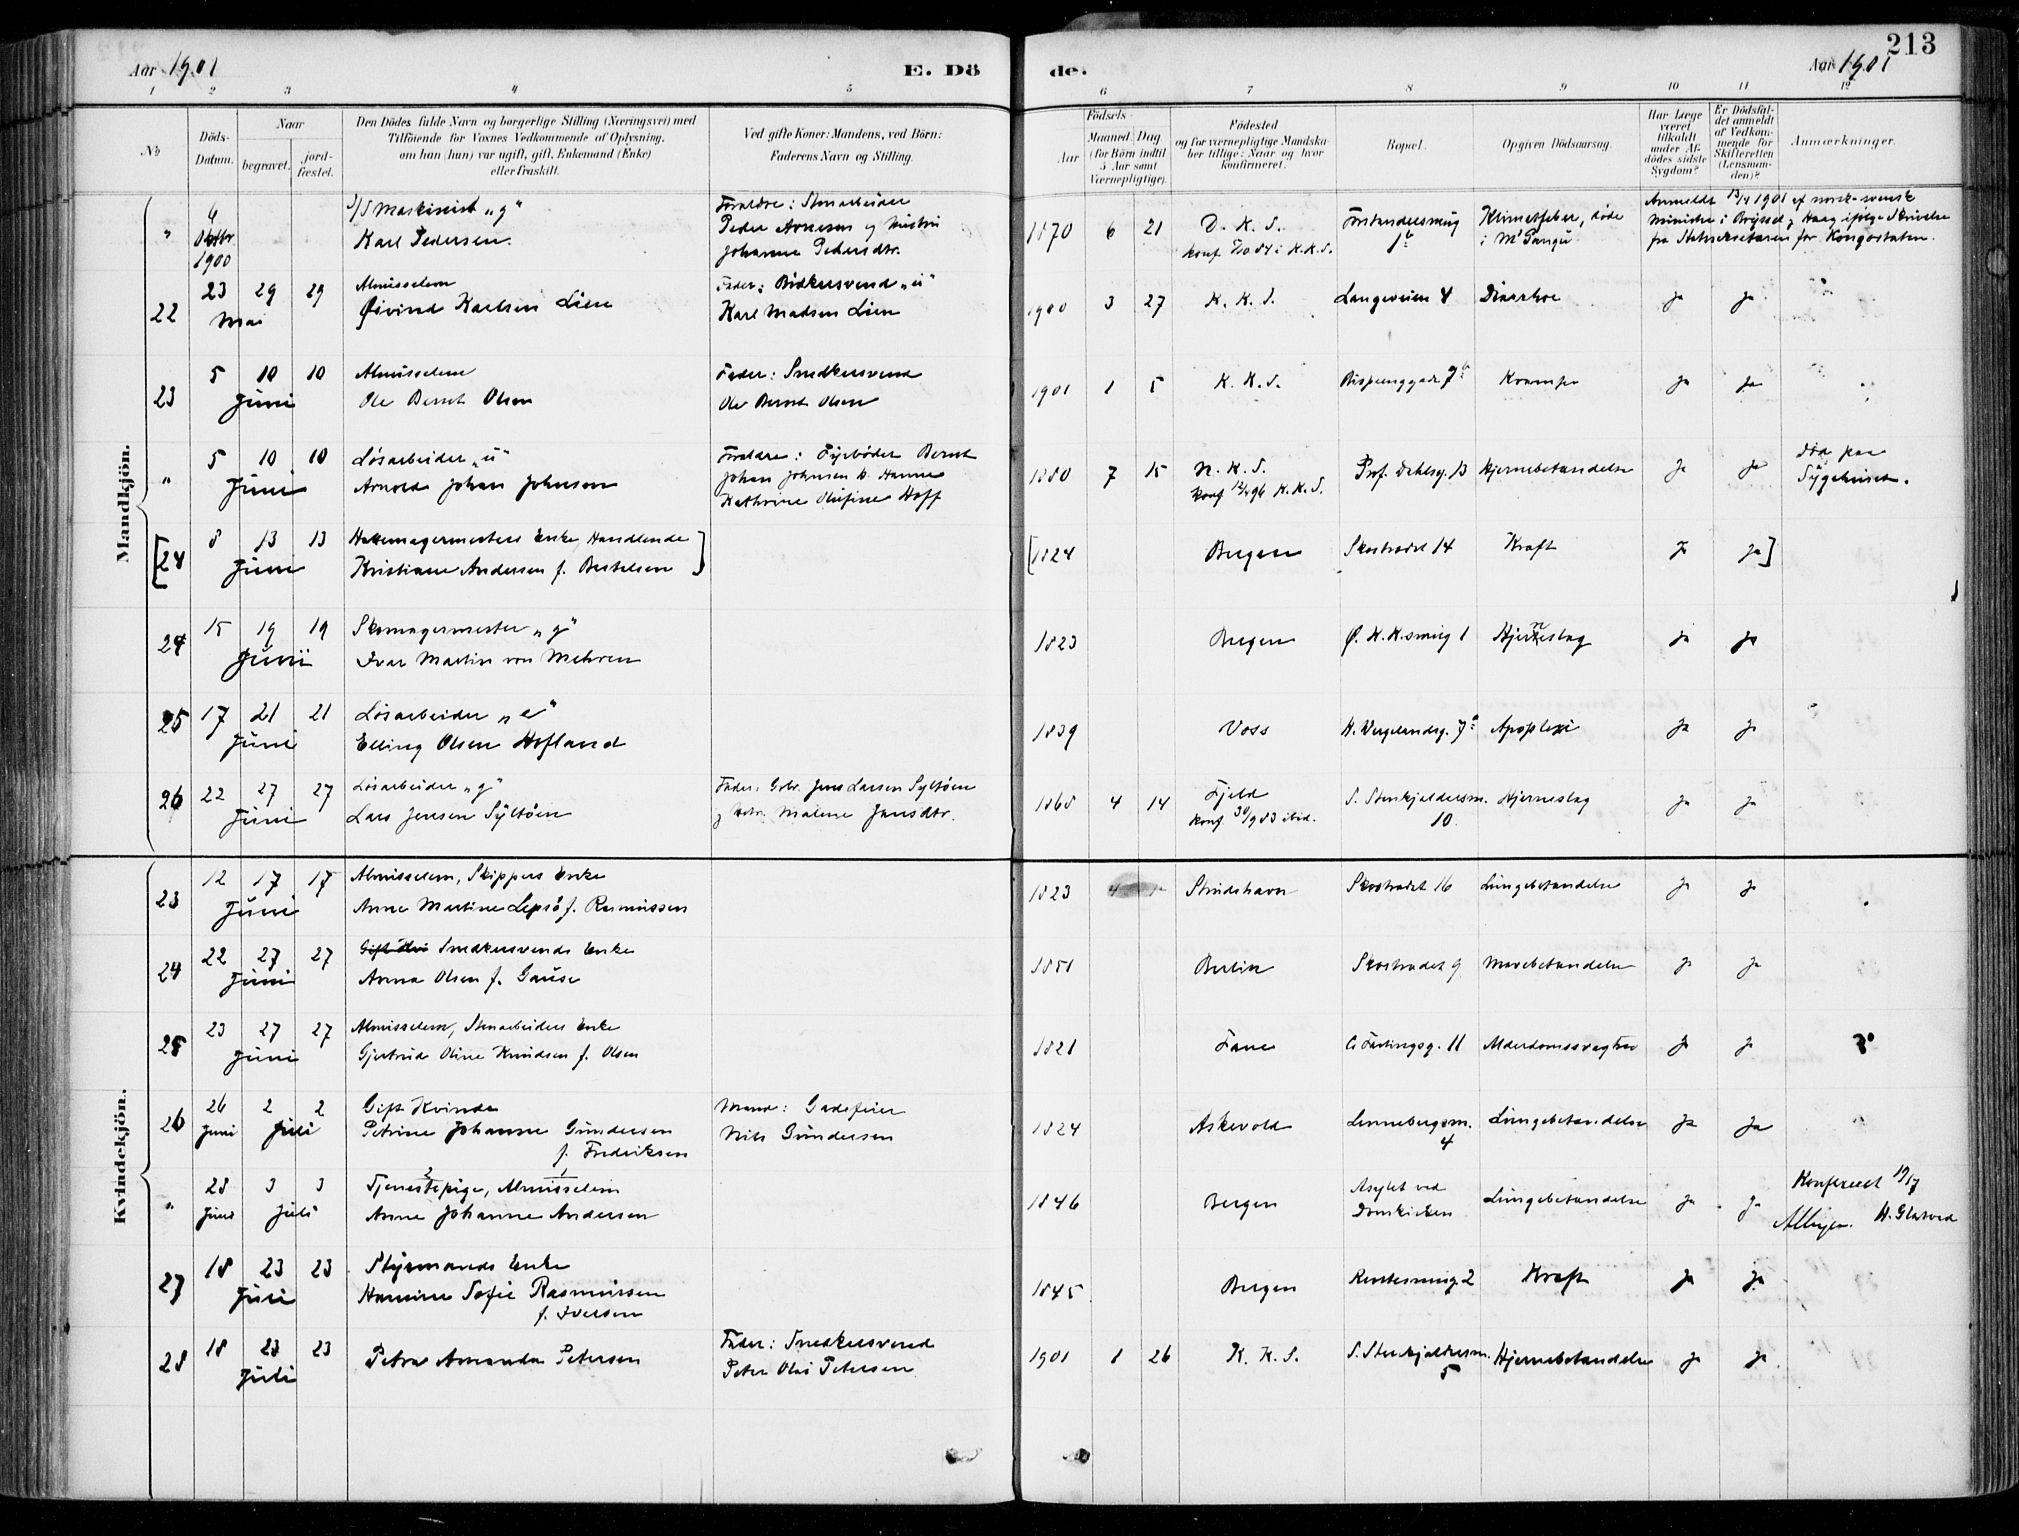 Aar 1901
E. Dö
de.
Aar 1901
213
1 2 3 4 5 6 7 8 9 10 11 12
No
Döds-Datum.
Naar
begravet.
jord-fæstet.
Den Dödes fulde Navn og borgerlige Stilling (Næringsvei) med
Tilföiende for Voxnes Vedkommende af Oplysning,
om han (hun) var ugift, gift, Enkemand (Enke)
eller fraskilt.
Ved gifte Koner: Mandens, ved Börn:
Faderens Navn og Stilling.
Födsels-
Aar
Maaned
Dag
(for Börn indtil
5 Aar samt
Værnepligtige).
Födested
og for værnepligtige Mandska-
ber tillige: Naar og hvor
konfirmeret.
Bopæl.
Opgiven Dödsaarsag.
Har Læge
været
tilkaldt
under Af-
dödes sidste
Sygdom?
Er Dödsfal-
det anmeldt
af Vedkom-
mende for
Skifteretten
(Lensman-
den)?
Anmærkninger.
Mandkjön.
" 4 Oktbr 1900 Maskinist „g“ Forældre: Stenarbeider 1870 6 21 D. K. S. Klimatfeber, døde Anmeldt 1901 af norsk-svensk
Karl Pedersen. Peder Arnesen og Hustru Johanne Pedersdtr. konf. K.K.S. Minister i Bryssel
fra Statssekretæren for Kongostaten.
22 23 Mai 29 29 Almisselem Fader: Bødkersvend „u“ 1900 3 27 K. K. S. Langeveien 4 Diarrhoe ja ja "
Øivind Karlsen Lien Karl Madsen Lien
23 5 10 10 Juni Almisselem Fader: Snedkersvend 1901 1 5 K. K. S. Krampe ja ja
Ole Bernt Olsen Ole Bernt Olsen
" 5 10 10 Juni Løsarbeider „u“ Forældre: Fyrbøder Bernt 1880 7 15 N. K. S. Prof. Dahlsg. 13 Hjernebetændelse ja ja død paa
Arnold Johan Johnsen Johan Johnsen & Hanna Kathrine Olufine Hoff konf. K.K.S. Sygehuset.
[24 8 13 13 Juni Enke, Handlende [1824 Bergen Skostrædet 14 Kræft ja ja]
Kristiane Andersen f. Bertelsen]
24 15 19 19 Juni Skomagermester „g“ 1823 Bergen Ø. K.K.smug 1 Hjerneslag ja ja
Ivar Martin von Mehren
25 17 21 21 Juni Løsarbeider „e“ 1839 Voss H. Vergelandsg. 7a Apoplexi ja ja
Elling Olsen Hofland
26 22 27 27 Juni Løsarbeider „g“ Fader: Gbr. Jens Larsen Syltøen 1868 4 14 Fjeld S. Stenkjeldersm. 10 Hjerneslag ja ja
Lars Jensen Syltøen Malene Jansdtr. konf. 30/9 83 ibid.
Kvindekjön.
23 12 17 17 Juni Almisselem, Skippers Enke 1823 Skostrædet 16 Lungebetændelse ja ja
Anne Martine Lepsø f. Rasmussen
24 22 27 27 Juni Snedkersvends Enke 1851 Berlin Skostrædet 9 Mavebetændelse ja ja
Anna Olsen f. Gause
25 23 27 27 Juni Almisselem, Stenarbeiders Enke 1821 Fane C. Fastingsg. 11 Alderdomssvaghed ja ja
Gjertrud Oline Knudsen f. Olsen
26 26 Juni 2 2 Juli Gift Kvinde Mand: Gadefeier 1824 Askevold Lennebergsm. 4 Lungebetændelse ja ja
Petrine Johanne Gundersen f. Fredriksen Nils Gundersen
" 28 Juni 3 3 Juli Tjenestepige, Almisselem 1846 Bergen Asylet ved Domkirken Lungebetændelse ja ja Konfereret
Anne Johanne Andersen
27 18 23 23 Juli Styrmands Enke 1845 Bergen Kræft ja ja
Hansine Sofie Rasmussen f. Iversen
28 18 23 23 Juli Petra Amanda Petersen Fader: Snedkersvend 1901 1 26 K. K. S. S. Stenkjeldersm. 5 Hjernebetændelse ja ja
Peter Olai Petersen